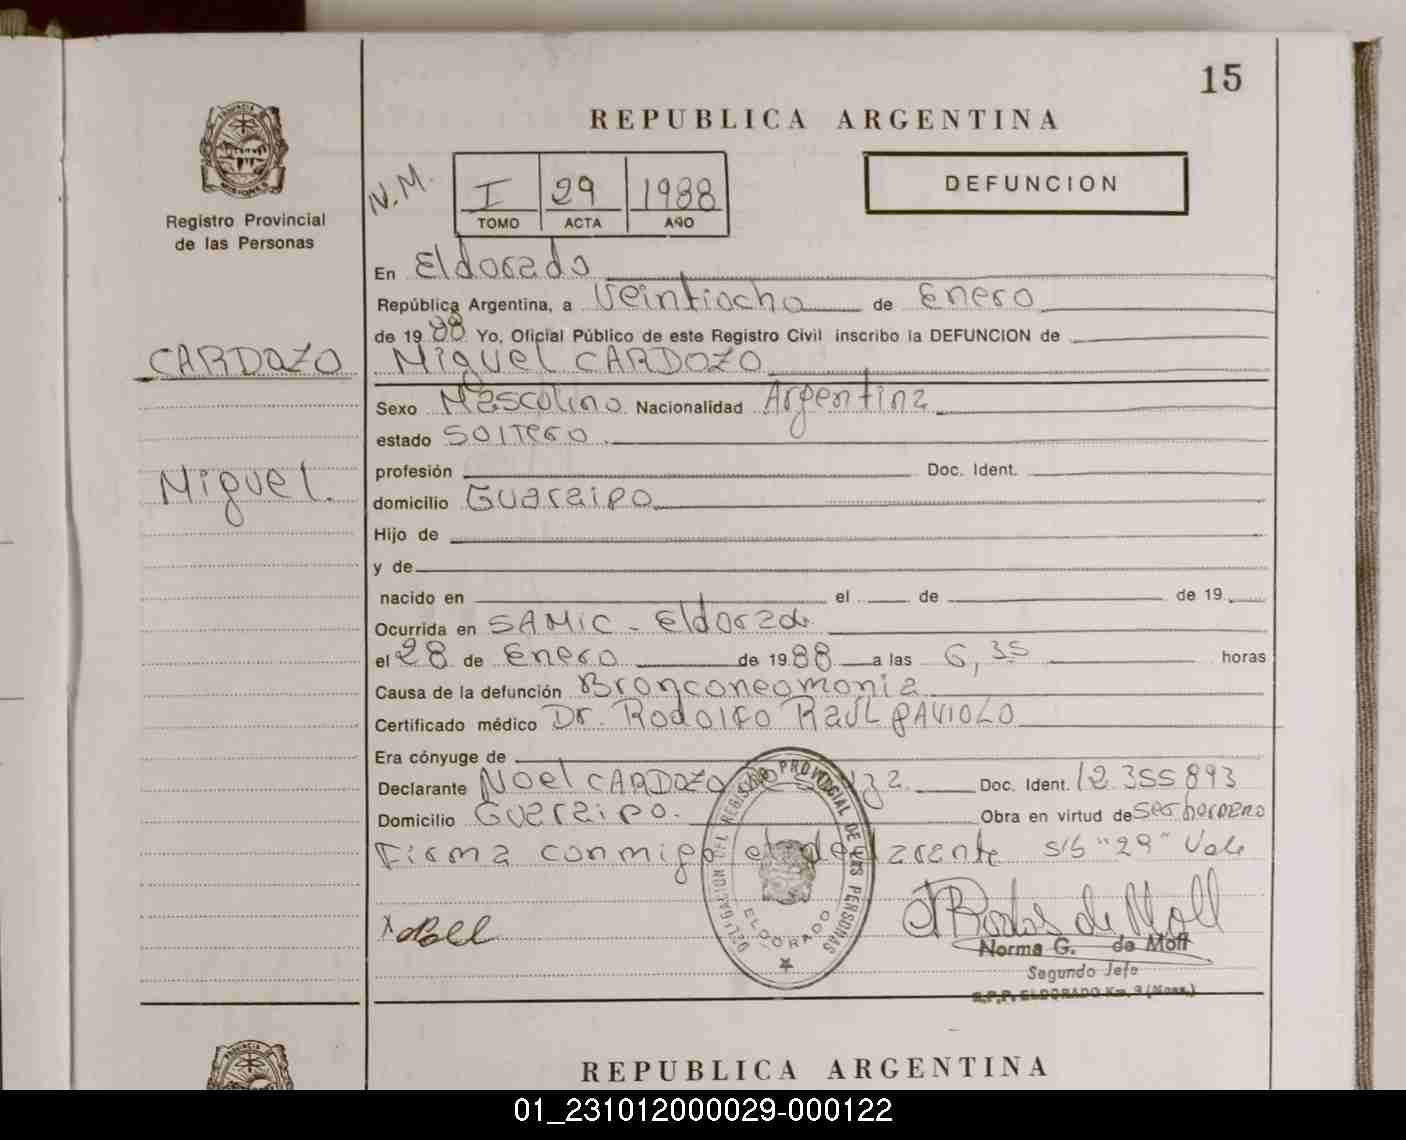 15
REPUBLICA ARGENTINA
Registro Provincial
de las Personas
N.M.
I 29 1988
TOMO ACTA AÑO
DEFUNCION
En Eldorado
República Argentina, a Veintiocho de Enero
de 1988 Yo, Oficial Público de este Registro Civil inscribo la DEFUNCION de
CARDOZO
Miguel CARDOZO
Sexo Mascolino Nacionalidad Argentina
estado Soltero
Miguel.
profesión Doc. Ident.
domicilio Guaraipo
Hijo de
y de
nacido en el de de 19
Ocurrida en SAMIC - Eldorado
el 28 de Enero de 1988 a las 6,35 horas
Causa de la defunción Bronconeomonia
Certificado médico Dr. Rodolfo Raúl PAVIOLO
Era cónyuge de
Declarante Noel CARDOZO Doc. Ident. 12.355893
Domicilio Guaraipo. Obra en virtud de ser
Firma conmigo el declarante s/b "29" Vale
DELEGACION DEL REGISTRO PROVINCIAL DE LAS PERSONAS
ELDORADO
Norma G. de Moll
Segundo Jefe
R.P.P. ELDORADO Km. 9 (Mnes.)
REPUBLICA ARGENTINA
01_231012000029-000122